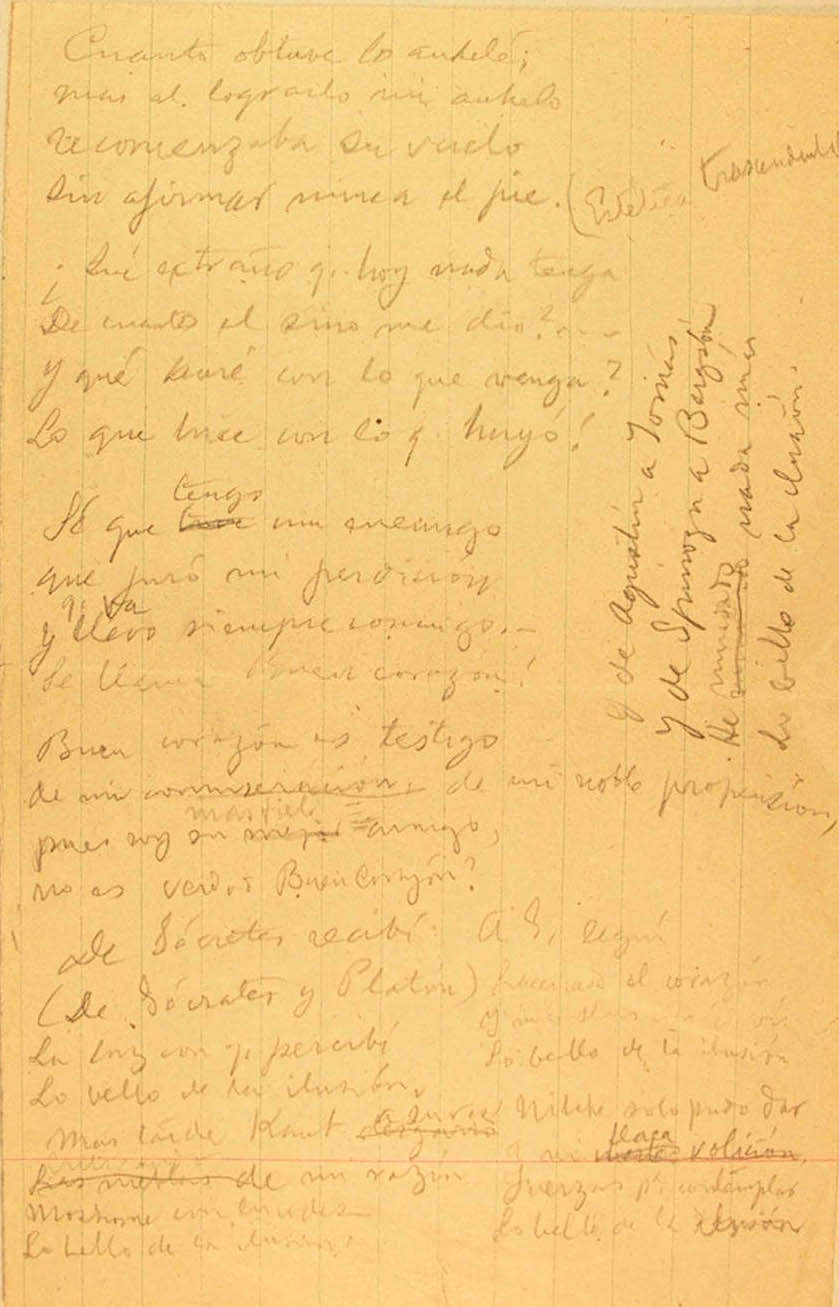 Cuanto obtuve lo anhelé;
mas al lograrlo mi anhelo
recomenzaba su vuelo
sin afirmar nunca el pie. (Estética trascendental
¿Qué extraño q. hoy nada tenga
De cuanto el sino me dio?....
Y qué haré con lo que venga?
Lo que hice con lo q. huyó!
tengo
Sé que un enemigo
que juró mi perdición
q. va
y llevo siempre conmigo...
Se llama Buen corazón!
Buen corazón es testigo
de mi conmiseración, de mi noble propensión,
mas fiel
pues soy su mejor amigo,
no es verdad Buen Corazón?
De Sócrates recibí
(De Sócrates y Platón)
La luz con q. percibí
Lo bello de la ilusión.
Mas tarde Kant
Las nieblas de mi razón
Mostrome con
Lo bello de la ilusión.
A S, seguí
el corazón
y mas
Lo bello de la ilusión
Nitche solo pudo dar
flaca
a mi volición,
fuerzas pª contemplar
Lo bello de la ilusión
Y de Agustín a Tomás
Y de Spinoza a Bergson
He mirado nada más
Lo bello de la ilusión.